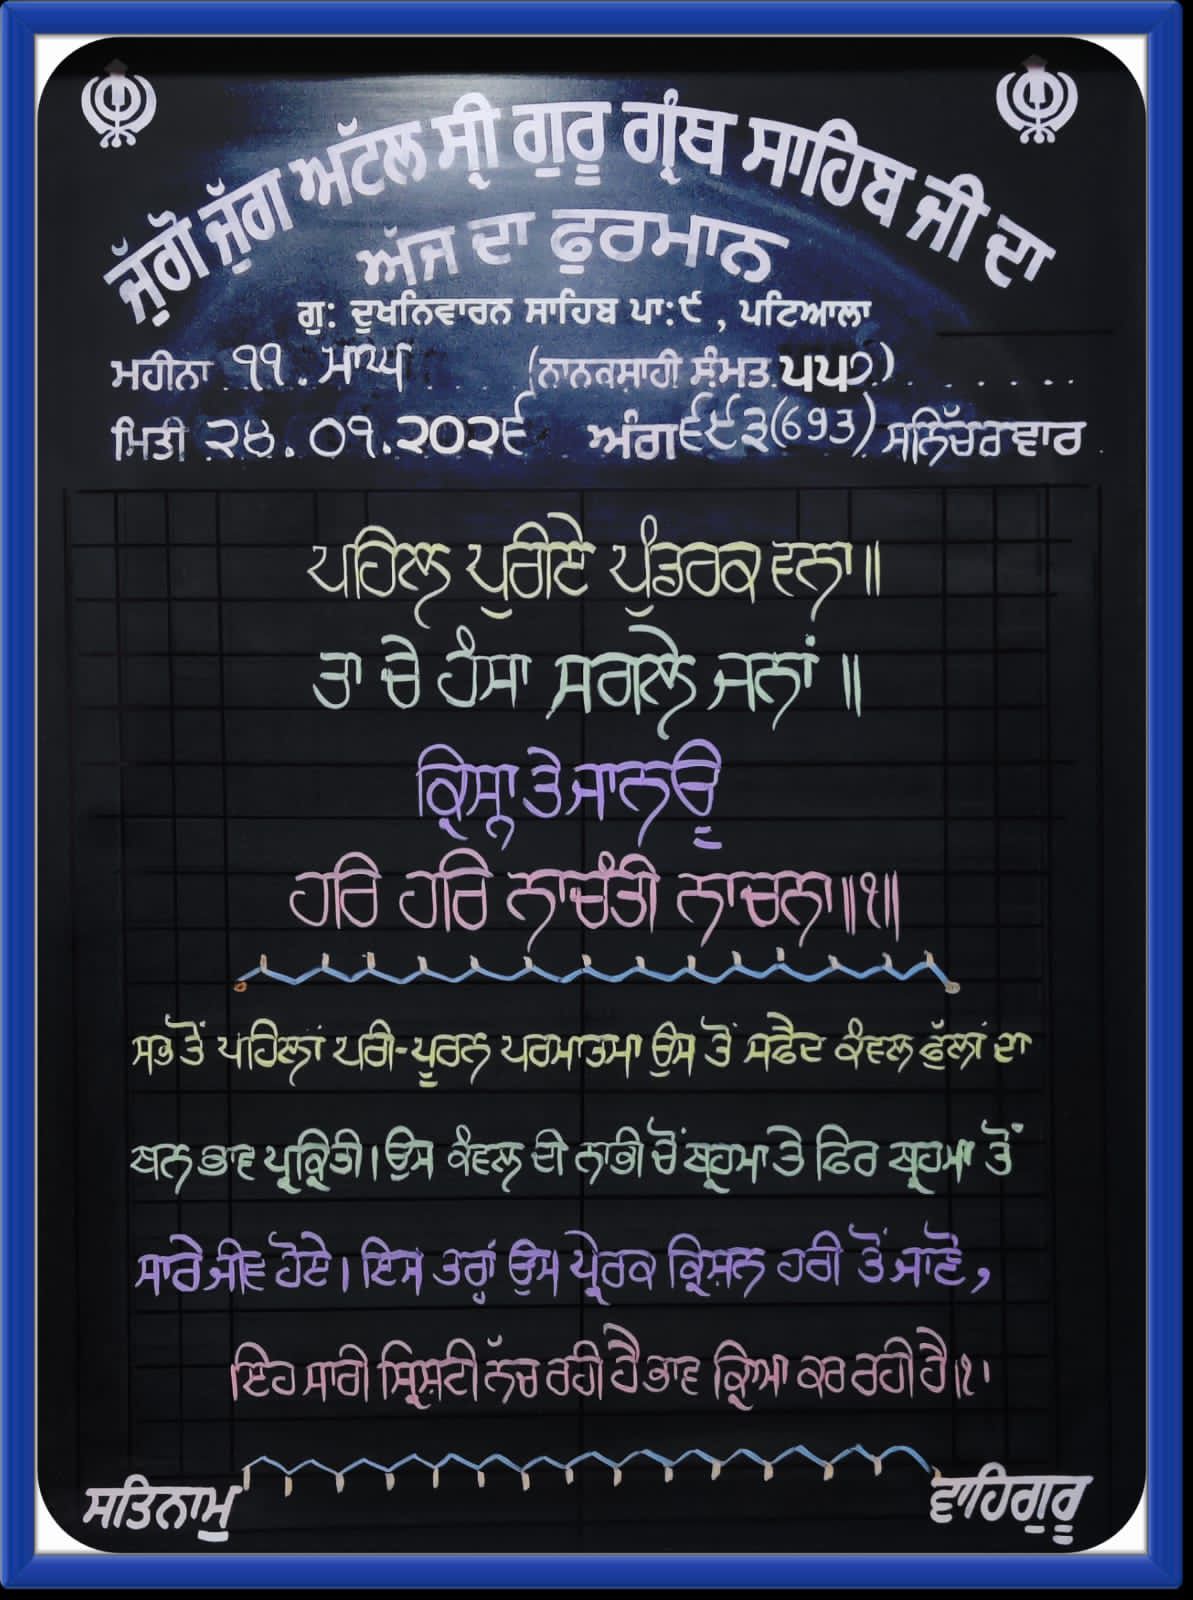 ਜੁੱਗੋ ਜੁੱਗ ਅਟੱਲ ਸ੍ਰੀ ਗੁਰੂ ਗ੍ਰੰਥ ਸਾਹਿਬ ਜੀ ਦਾ
ਅੱਜ ਦਾ ਫੁਰਮਾਨ
ਗੁ: ਦੁਖਨਿਵਾਰਨ ਸਾਹਿਬ ਪਾ:੯, ਪਟਿਆਲਾ
ਮਹੀਨਾ ੧੧. ਮਾਘ (ਨਾਨਕਸ਼ਾਹੀ ਸੰਮਤ ੫੫੭)
ਮਿਤੀ ੨੪.੦੧.੨੦੨੬ ਅੰਗ ੬੯੩(693) ਸਨਿੱਚਰਵਾਰ
ਪਹਿਲ ਪੁਰੀਏ ਪੁੰਡਰਕ ਵਨਾ॥
ਤਾ ਚੇ ਹੰਸਾ ਸਗਲੇ ਜਨਾਂ॥
ਕ੍ਰਿਸ੍ਨਾ ਤੇ ਜਾਨਊ
ਹਰਿ ਹਰਿ ਨਾਚੰਤੀ ਨਾਚਨਾ॥੧॥
ਸਭ ਤੋਂ ਪਹਿਲਾਂ ਪਰੀ-ਪੂਰਨ ਪਰਮਾਤਮਾ ਉਸ ਤੋਂ ਸਫੈਦ ਕੰਵਲ ਫੁੱਲਾਂ ਦਾ
ਬਨ ਭਾਵ ਪ੍ਰਕ੍ਰਿਤੀ। ਉਸ ਕੰਵਲ ਦੀ ਨਾਭੀ ਚੋਂ ਬ੍ਰਹਮਾ ਤੇ ਫਿਰ ਬ੍ਰਹਮਾ ਤੋਂ
ਸਾਰੇ ਜੀਵ ਹੋਏ। ਇਸ ਤਰ੍ਹਾਂ ਉਸ ਪ੍ਰੇਰਕ ਕ੍ਰਿਸ਼ਨ ਹਰੀ ਤੋਂ ਜਾਣੋ,
ਇਹ ਸਾਰੀ ਸ੍ਰਿਸ਼ਟੀ ਨੱਚ ਰਹੀ ਹੈ ਭਾਵ ਕ੍ਰਿਆ ਕਰ ਰਹੀ ਹੈ।੧।
ਸਤਿਨਾਮੁ
ਵਾਹਿਗੁਰੂ